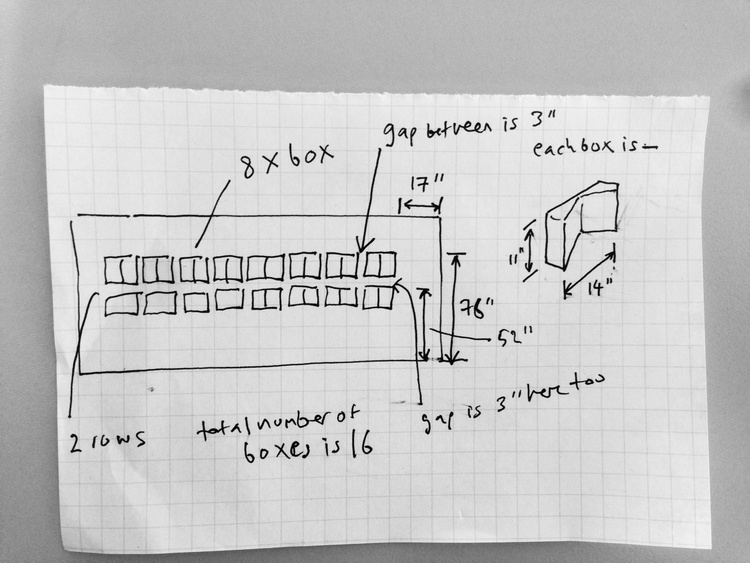 gap between is 3"
8 x box
each box is -
17"
11"
14"
76"
52"
gap is 3" here too
2 rows
total number of
boxes is 16